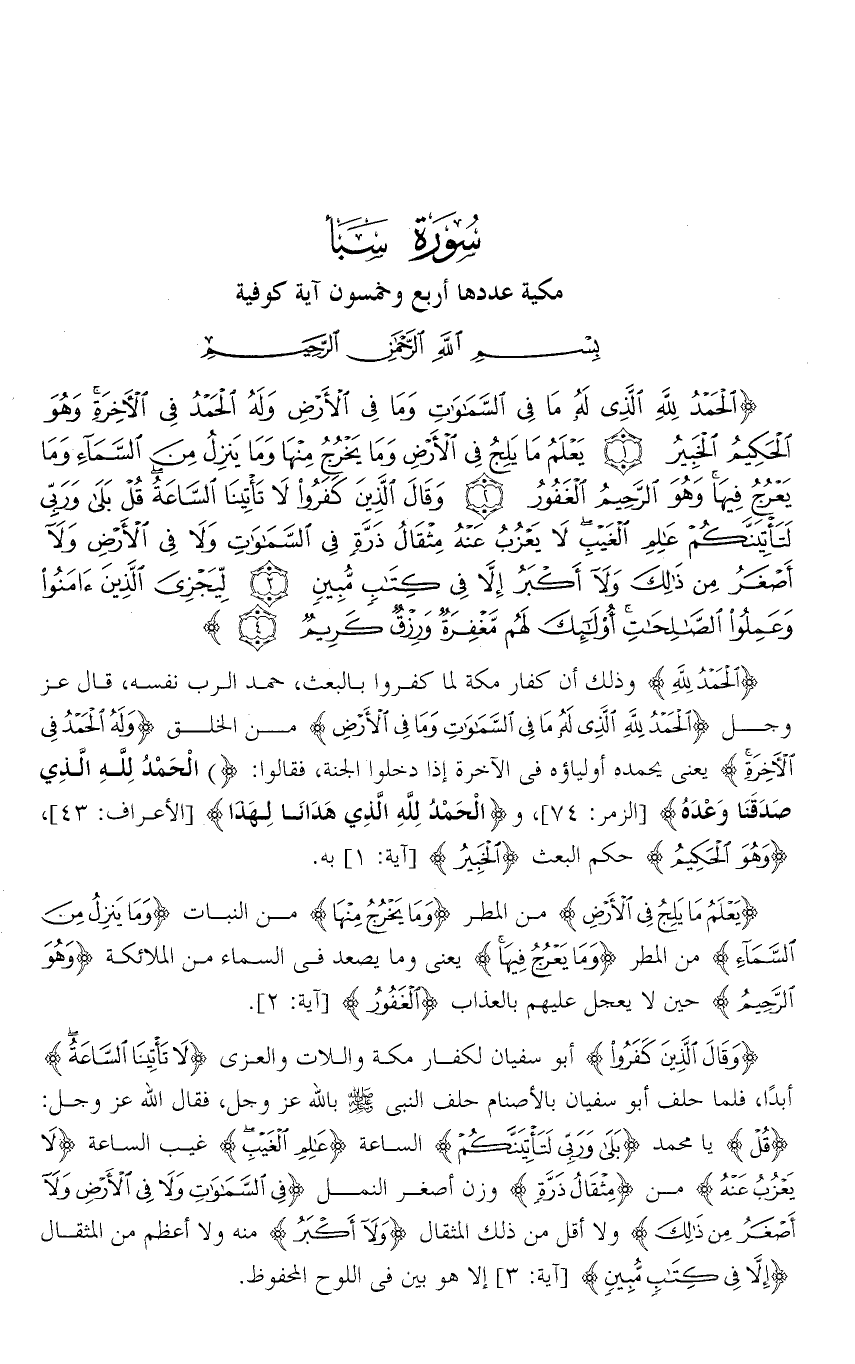 سُورَةُ سَبَأٍ
مكية عددها أربع وخمسون آية كوفية
بِسْمِ ٱللَّهِ ٱلرَّحْمَٰنِ ٱلرَّحِيمِ
﴿ٱلْحَمْدُ لِلَّهِ ٱلَّذِى لَهُۥ مَا فِى ٱلسَّمَٰوَٰتِ وَمَا فِى ٱلْأَرْضِ وَلَهُ ٱلْحَمْدُ فِى ٱلْأَخِرَةِۚ وَهُوَ
ٱلْحَكِيمُ ٱلْخَبِيرُ ۝١ يَعْلَمُ مَا يَلِجُ فِى ٱلْأَرْضِ وَمَا يَخْرُجُ مِنْهَا وَمَا يَنزِلُ مِنَ ٱلسَّمَآءِ وَمَا
يَعْرُجُ فِيهَاۚ وَهُوَ ٱلرَّحِيمُ ٱلْغَفُورُ ۝٢ وَقَالَ ٱلَّذِينَ كَفَرُوا۟ لَا تَأْتِينَا ٱلسَّاعَةُۖ قُلْ بَلَىٰ وَرَبِّى
لَتَأْتِيَنَّكُمْ عَٰلِمِ ٱلْغَيْبِۖ لَا يَعْزُبُ عَنْهُ مِثْقَالُ ذَرَّةٍ فِى ٱلسَّمَٰوَٰتِ وَلَا فِى ٱلْأَرْضِ وَلَآ
أَصْغَرُ مِن ذَٰلِكَ وَلَآ أَكْبَرُ إِلَّا فِى كِتَٰبٍ مُّبِينٍ ۝٣ لِّيَجْزِىَ ٱلَّذِينَ ءَامَنُوا۟
وَعَمِلُوا۟ ٱلصَّٰلِحَٰتِۚ أُو۟لَٰٓئِكَ لَهُم مَّغْفِرَةٌ وَرِزْقٌ كَرِيمٌ ۝٤ ﴾
﴿ٱلْحَمْدُ لِلَّهِ﴾ وذلك أن كفار مكة لما كفروا بالبعث، حمد الرب نفسه، قال عز
وجل ﴿ٱلْحَمْدُ لِلَّهِ ٱلَّذِى لَهُۥ مَا فِى ٱلسَّمَٰوَٰتِ وَمَا فِى ٱلْأَرْضِ﴾ من الخلق ﴿وَلَهُ ٱلْحَمْدُ فِى
ٱلْأَخِرَةِۚ﴾ يعنى يحمده أولياؤه فى الآخرة إذا دخلوا الجنة، فقالوا: ﴿) الْحَمْدُ لِلَّهِ الَّذِي
صَدَقَنَا وَعْدَهُ﴾ [الزمر: ٧٤]، و﴿الْحَمْدُ لِلَّهِ الَّذِي هَدَانَا لِهَذَا﴾ [الأعراف: ٤٣]،
﴿وَهُوَ ٱلْحَكِيمُ﴾ حكم البعث ﴿ٱلْخَبِيرُ﴾ [آية: ١] به.
﴿يَعْلَمُ مَا يَلِجُ فِى ٱلْأَرْضِ﴾ من المطر ﴿وَمَا يَخْرُجُ مِنْهَا﴾ من النبات ﴿وَمَا يَنزِلُ مِنَ
ٱلسَّمَآءِ﴾ من المطر ﴿وَمَا يَعْرُجُ فِيهَاۚ﴾ يعنى وما يصعد فى السماء من الملائكة ﴿وَهُوَ
ٱلرَّحِيمُ﴾ حين لا يعجل عليهم بالعذاب ﴿ٱلْغَفُورُ﴾ [آية: ٢].
﴿وَقَالَ ٱلَّذِينَ كَفَرُوا۟﴾ أبو سفيان لكفار مكة واللات والعزى ﴿لَا تَأْتِينَا ٱلسَّاعَةُۖ﴾
أبدًا، فلما حلف أبو سفيان بالأصنام حلف النبى ﷺ بالله عز وجل، فقال الله عز وجل:
﴿قُلْ﴾ يا محمد ﴿بَلَىٰ وَرَبِّى لَتَأْتِيَنَّكُمْ﴾ الساعة ﴿عَٰلِمِ ٱلْغَيْبِۖ﴾ غيب الساعة ﴿لَا
يَعْزُبُ عَنْهُ﴾ من ﴿مِثْقَالُ ذَرَّةٍ﴾ وزن أصغر النمل ﴿فِى ٱلسَّمَٰوَٰتِ وَلَا فِى ٱلْأَرْضِ وَلَآ
أَصْغَرُ مِن ذَٰلِكَ﴾ ولا أقل من ذلك المثقال ﴿وَلَآ أَكْبَرُ﴾ منه ولا أعظم من المثقال
﴿إِلَّا فِى كِتَٰبٍ مُّبِينٍ﴾ [آية: ٣] إلا هو بين فى اللوح المحفوظ.